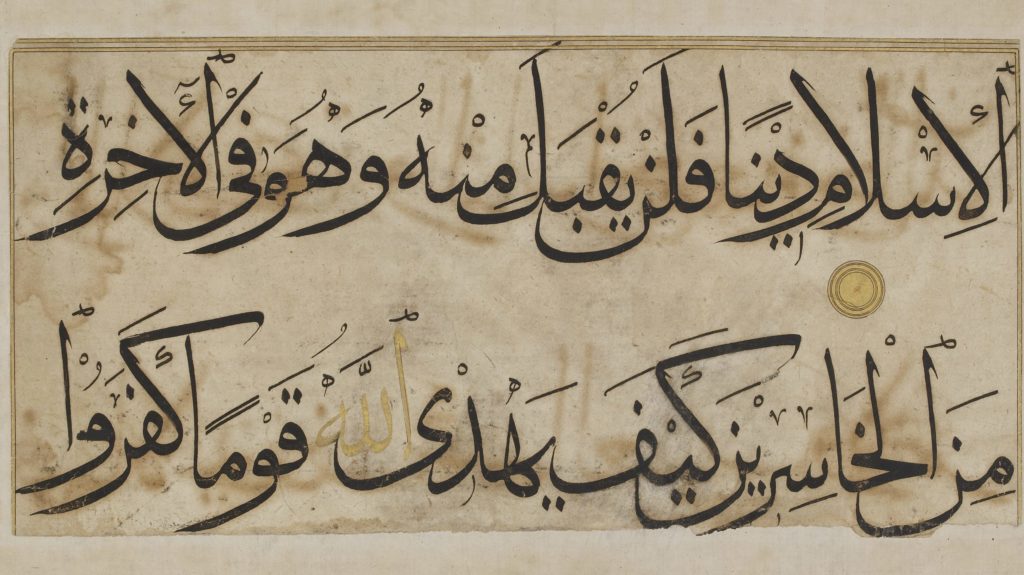 ٱلْإِسْلَامِ دِيْنًا فَلَنْ يُقْبَلَ مِنْهُ وَهُوَ فِى ٱلْأٓخِرَةِ
مِنَ ٱلْخَاسِرِيْنَ كَيْفَ يَهْدِى ٱللَّهُ قَوْمًا كَفَرُوْا